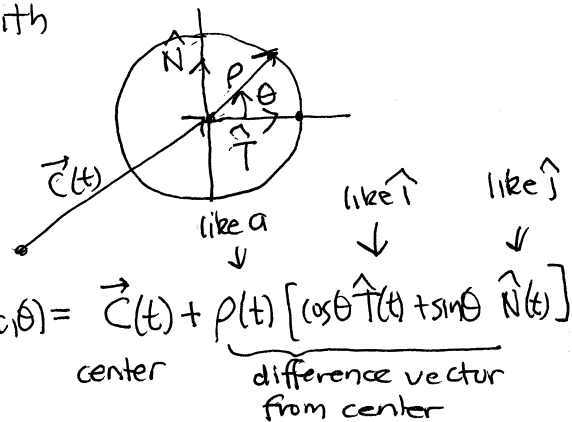 ith
N̂
ρ
θ
T̂
C⃗(t)
like a
like î
like ĵ
,θ) = C⃗(t) + ρ(t) [cosθ T̂(t) + sinθ N̂(t)]
center
difference vector
from center